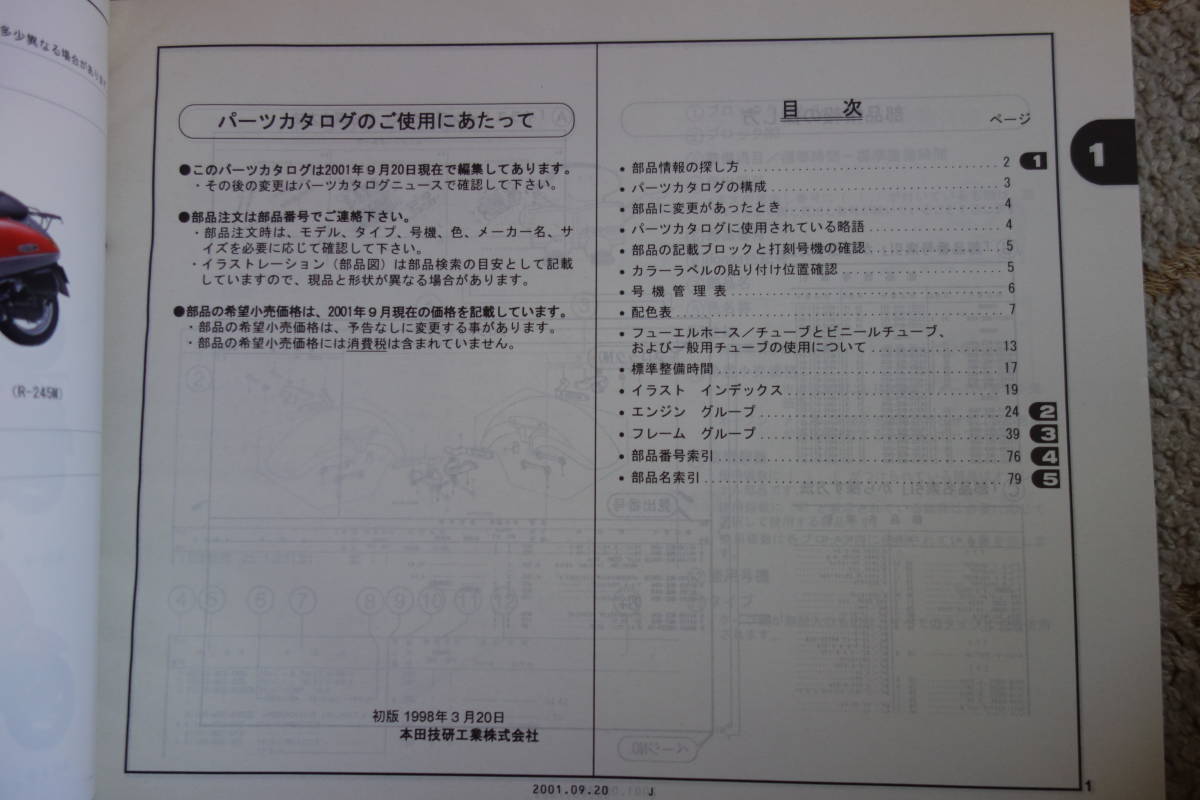 多少異なる場合があります
(R-245M)
パーツカタログのご使用にあたって
●このパーツカタログは2001年9月20日現在で編集してあります。
・その後の変更はパーツカタログニュースで確認して下さい。
●部品注文は部品番号でご連絡下さい。
・部品注文時は、モデル、タイプ、号機、色、メーカー名、サ
イズを必要に応じて確認して下さい。
・イラストレーション(部品図)は部品検索の目安として記載
していますので、現品と形状が異なる場合があります。
●部品の希望小売価格は、2001年9月現在の価格を記載しています。
・部品の希望小売価格は、予告なしに変更する事があります。
・部品の希望小売価格には消費税は含まれていません。
初版 1998年3月20日
本田技研工業株式会社
目 次
ページ
・部品情報の探し方 2 1
・パーツカタログの構成 3
・部品に変更があったとき 4
・パーツカタログに使用されている略語 4
・部品の記載ブロックと打刻号機の確認 5
・カラーラベルの貼り付け位置確認 5
・号機管理表 6
・配色表 7
・フューエルホース/チューブとビニールチューブ、
および一般用チューブの使用について 13
・標準整備時間 17
・イラスト インデックス 19
・エンジン グループ 24 2
・フレーム グループ 39 3
・部品番号索引 76 4
・部品名索引 79 5
1
2001.09.20 J
1